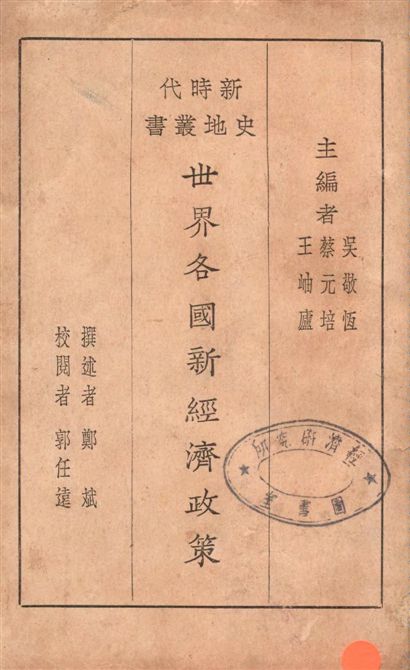 主編者
吳敬恆
蔡元培
王岫廬
新時代
史地叢書
世界各國新經濟政策
撰述者 鄭斌
校閱者 郭任遠
經濟研究
圖書